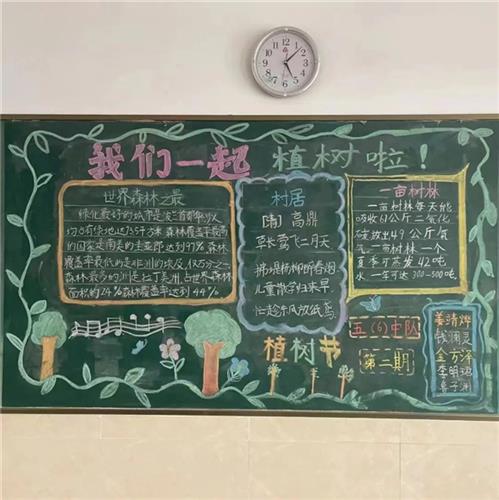 我们一起植树啦！
世界森林之最
绿化最好的城市是波兰首都华沙人
均占有绿地达75平方米 森林覆盖率最高
的国家是南美的圭亚那达到97% 森林
覆盖率最低的是非洲的埃及 仅百万分之一
森林最多的洲是拉丁美洲占世界森林
面积的24% 森林覆盖率达到44%
村居
[清] 高鼎
草长莺飞二月天
拂堤杨柳醉春烟
儿童散学归来早
忙趁东风放纸鸢
一亩树林
一亩树林每天能
吸收61公斤二氧化
碳 放出49公斤氧
气 一亩树林一个
夏季可蒸发42吨
水 一年可达 300-500吨
植树节
五(6)中队
第二期
姜靖烨
钱澜灵
金方泽
李明珺
鲁子涵